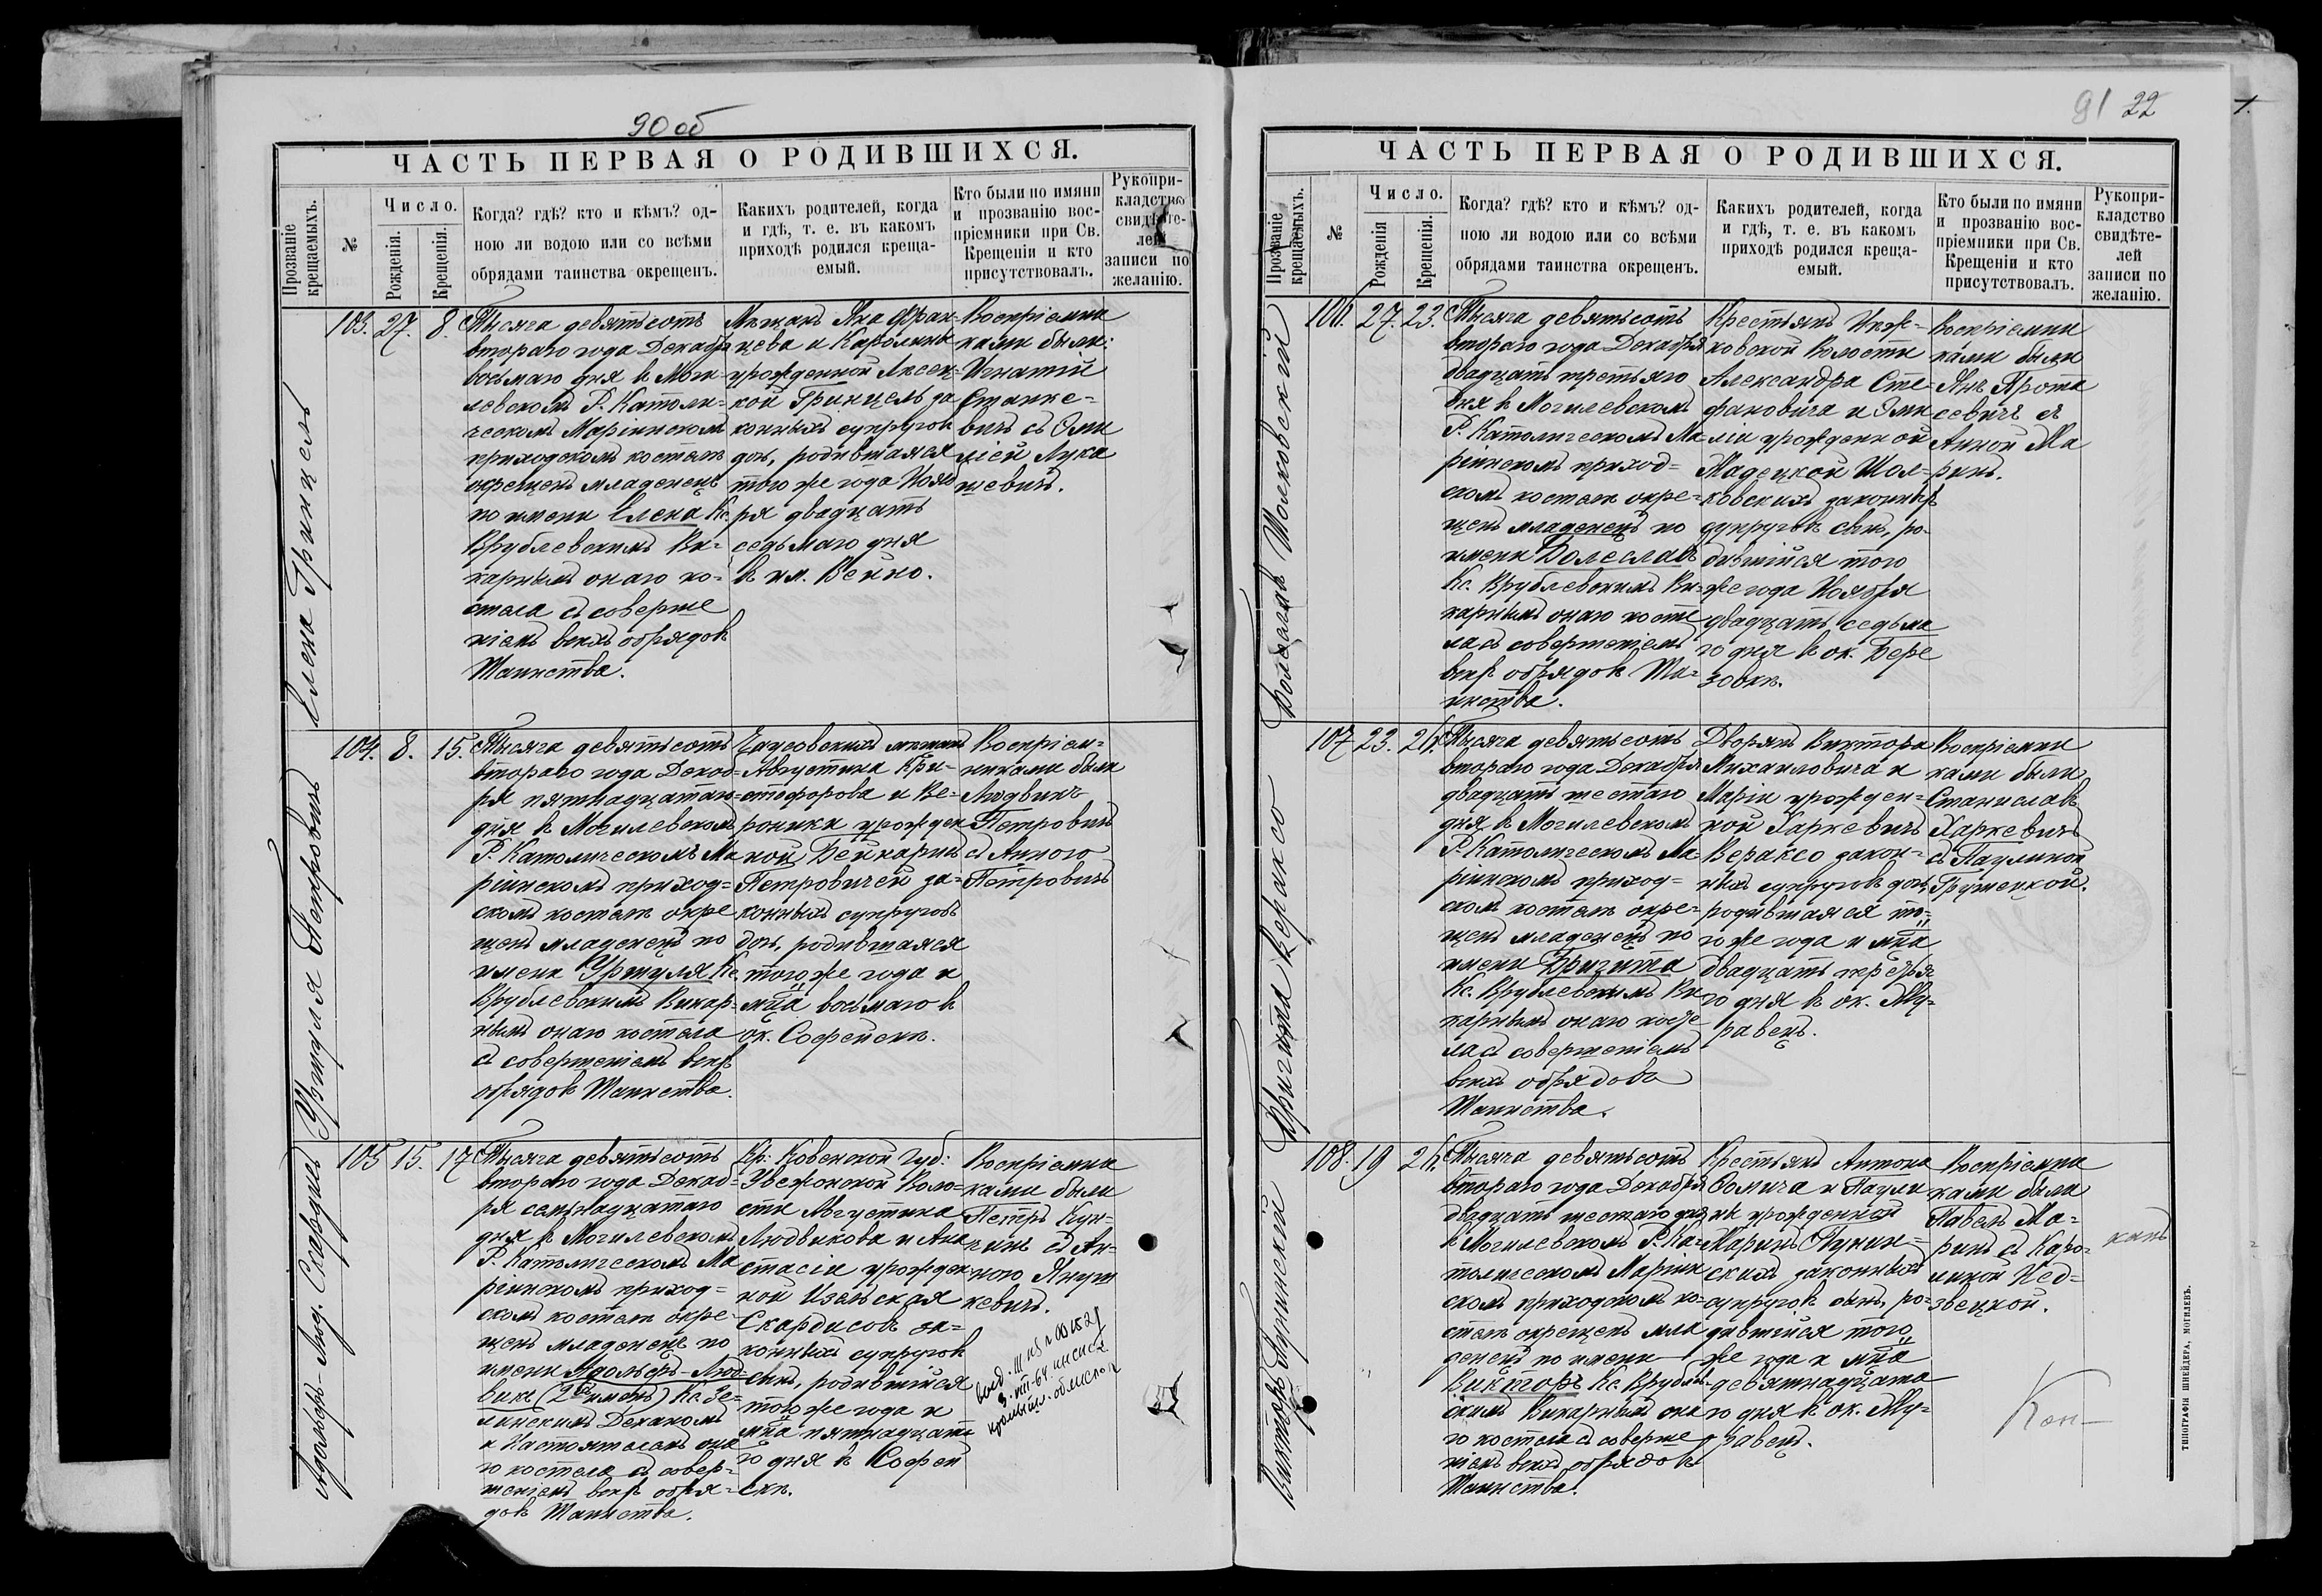 90 об
ЧАСТЬ ПЕРВАЯ О РОДИВШИХСЯ.
Прозваніе крещаемыхъ.
№
Число.
Рожденія.
Крещенія.
Когда? гдѣ? кто и кѣмъ? од-
ною ли водою или со всѣми
обрядами таинства окрещенъ.
Какихъ родителей, когда
и гдѣ, т. е. въ какомъ
приходѣ родился креща-
емый.
Кто были по имяни
и прозванію вос-
пріемники при Св.
Крещеніи и кто
присутствовалъ.
Рукопри-
кладство
свидѣте-
лей
записи по
желанію.
Елена Гринцель
103. 27. 8.
Тысяча девятьсотъ
втораго года Декабря
восьмаго дня въ Моги-
левскомъ Р. Католи-
ческомъ Маріинскомъ
приходскомъ костелѣ
окрещенъ младенецъ
по имени Елена Кс.
Врублевскимъ Ви-
карнымъ онаго ко-
стела съ соверше
ніемъ всѣхъ обрядовъ
Таинства.
Мѣщанъ Яна Фран-
цева и Каролины
урожденной Лисец-
кой Гринцель за
конныхъ супруговъ
дочь, родившаяся
того же года Нояб
ря двадцать
седьмаго дня
въ им. Вейно.
Воспріемни
ками были:
Игнатій
Станке-
вичъ съ Эми
ліей Лука
шевичъ.
Уршуля Петровичъ
104. 8. 15.
Тысяча девятьсотъ
втораго года Декаб-
ря пятнадцатаго
дня въ Могилевскомъ
Р. Католическомъ Ма
ріинскомъ приход-
скомъ костелѣ окре
щенъ младенецъ по
имени Уршуля Кс.
Врублевскимъ Викар-
нымъ онаго костела
съ совершеніемъ всѣхъ
обрядовъ Таинства.
Чаусовскихъ мѣщанъ
Августина Кри-
стофорова и Ве-
роники урожден
ной Бейнаринъ
Петровичей за-
конныхъ супруговъ
дочь, родившаяся
того же года и
мца восьмаго въ
ок. Софейскѣ.
Воспріем-
никами были
Людвикъ
Петровичъ
съ Анною
Петровичъ
Адольфъ-Люд. Скардисъ
105 15. 17
Тысяча девятьсотъ
втораго года Декаб-
ря семьнадцатаго
дня въ Могилевскомъ
Р. Католическомъ Ма
ріинскомъ приход-
скомъ костелѣ окре
щенъ младенецъ по
имени Адольфъ-Люд-
викъ (2хъ именъ) Кс. Зе-
линскимъ Деканомъ
и Настоятелемъ она
го костела съ совер-
шеніемъ всѣхъ обря-
довъ Таинства.
Кр: Ковенской Губ:
Волo-
сти Августина
Людвикова и Ана
стасіи урожден
ной
Скардисовъ за-
конныхъ супруговъ
сынъ, родившійся
того же года и
мца пятнадцата
го дня въ Софей
скѣ.
Воспріемни
ками были
Петръ Кун-
чинъ съ Ан-
ною Януш
кевичъ.
91 22
ЧАСТЬ ПЕРВАЯ О РОДИВШИХСЯ.
Прозваніе крещаемыхъ.
№
Число.
Рожденія
Крещенія.
Когда? гдѣ? кто и кѣмъ? од-
ною ли водою или со всѣми
обрядами таинства окрещенъ.
Какихъ родителей, когда
и гдѣ, т. е. въ какомъ
приходѣ родился креща-
емый.
Кто были по имяни
и прозванію вос-
пріемники при Св.
Крещеніи и кто
присутствовалъ.
Рукопри-
кладство
свидѣте-
лей
записи по
желанію.
Болеславъ Шолковскій
106. 27. 23.
Тысяча девятьсотъ
втораго года Декабря
двадцать третьяго
дня въ Могилевскомъ
Р. Католическомъ Ма-
ріинскомъ приход-
скомъ костелѣ окре-
щенъ младенецъ по
имени Болеславъ
Кс. Врублевскимъ Ви-
карнымъ онаго косте
ла съ совершеніемъ
всѣхъ обрядовъ Та-
инства.
Крестьянъ
ковской Волости
Александра Сте-
фановича и Эми
ліи урожденной
Шол-
ковскихъ законныхъ
супруговъ сынъ, ро-
дившійся того
же года Ноября
двадцать седьма
го дня въ ок. Бере
зовкѣ.
Воспріемни
ками были
Янъ Прота
севичъ съ
Анной Ма
ринъ.
Бригитта Вераксо
107 23. 26.
Тысяча девятьсотъ
втораго года Декабря
двадцать шестаго
дня въ Могилевскомъ
Р. Католическомъ Ма-
ріинскомъ приход-
скомъ костелѣ окре-
щенъ младенецъ по
имени Бригита
Кс. Врублевскимъ Ви
карнымъ онаго косте
ла съ совершеніемъ
всѣхъ обрядовъ
Таинства.
Дворянъ Виктора
Михаиловича и
Маріи урожден-
ной Харкевичъ
Вераксо закон-
ныхъ супруговъ дочь
родившаяся то-
го же года и мца
двадцать третья
го дня въ ок. Му-
равецъ.
Воспріемни
ками были
Станиславъ
Харкевичъ
съ Паулиной
Грушецкой.
Викторъ Пунинскій
108. 19 26.
Тысяча девятьсотъ
втораго года Декабря
двадцать шестаго дня
въ Могилевскомъ Р. Ка-
толическомъ Маріин
скомъ приходскомъ ко-
стелѣ окрещенъ мла
денецъ по имени
Викторъ Кс. Врублев-
скимъ Викарнымъ она
го костела съ соверше
ніемъ всѣхъ обрядовъ
Таинства.
Крестьянъ Антона
Фомича и Паули
ны урожденной
Маринъ Пунин-
скихъ законныхъ
супруговъ сынъ, ро-
дившійся того
же года и мца
девятнадцата
го дня въ ок. Му-
равецъ.
Воспріемни
ками были
Павелъ Ма-
ринъ съ Каро-
линой Нед-
звецкой.
Кон-
ТИПОГРАФІЯ ШНЕЙДЕРА, МОГИЛЕВЪ.